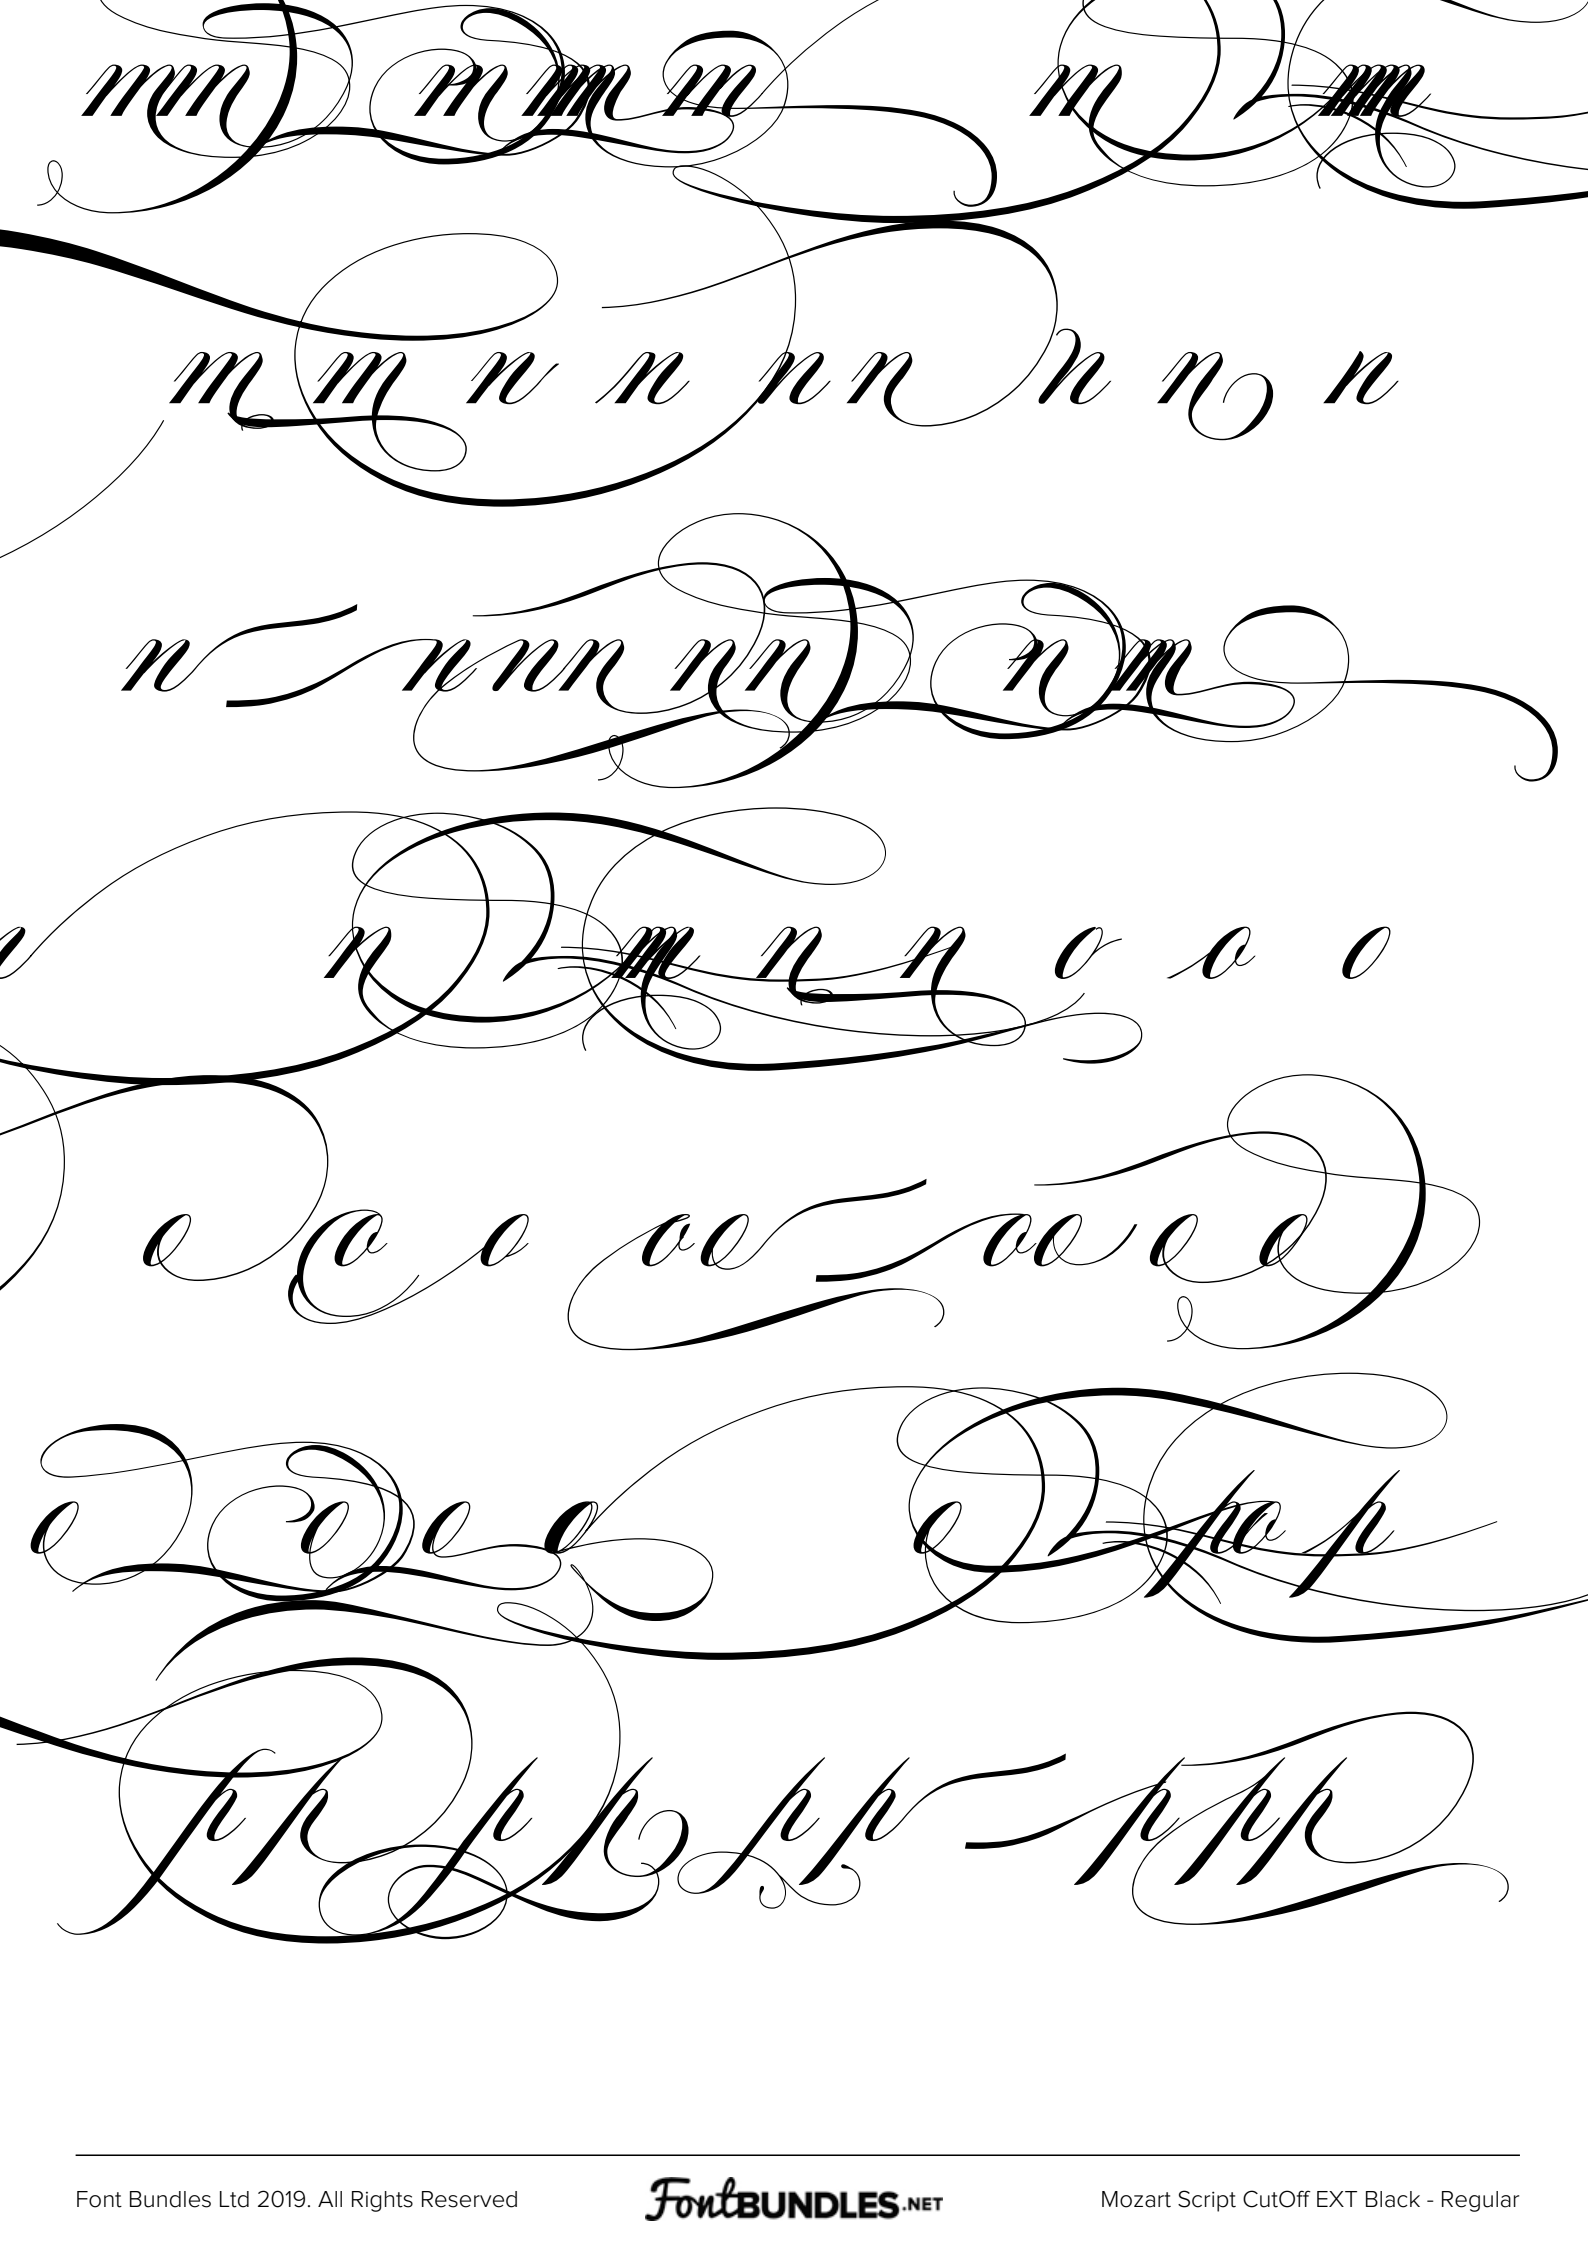 m m m m m m m
m m n n n n n n n
n n n n n n n n m
n n m n n o o o
o o o o o o o o o
o o o o o p o p
p p p p p p p p p
Font Bundles Ltd 2019. All Rights Reserved
FontBUNDLES.NET
Mozart Script CutOff EXT Black - Regular